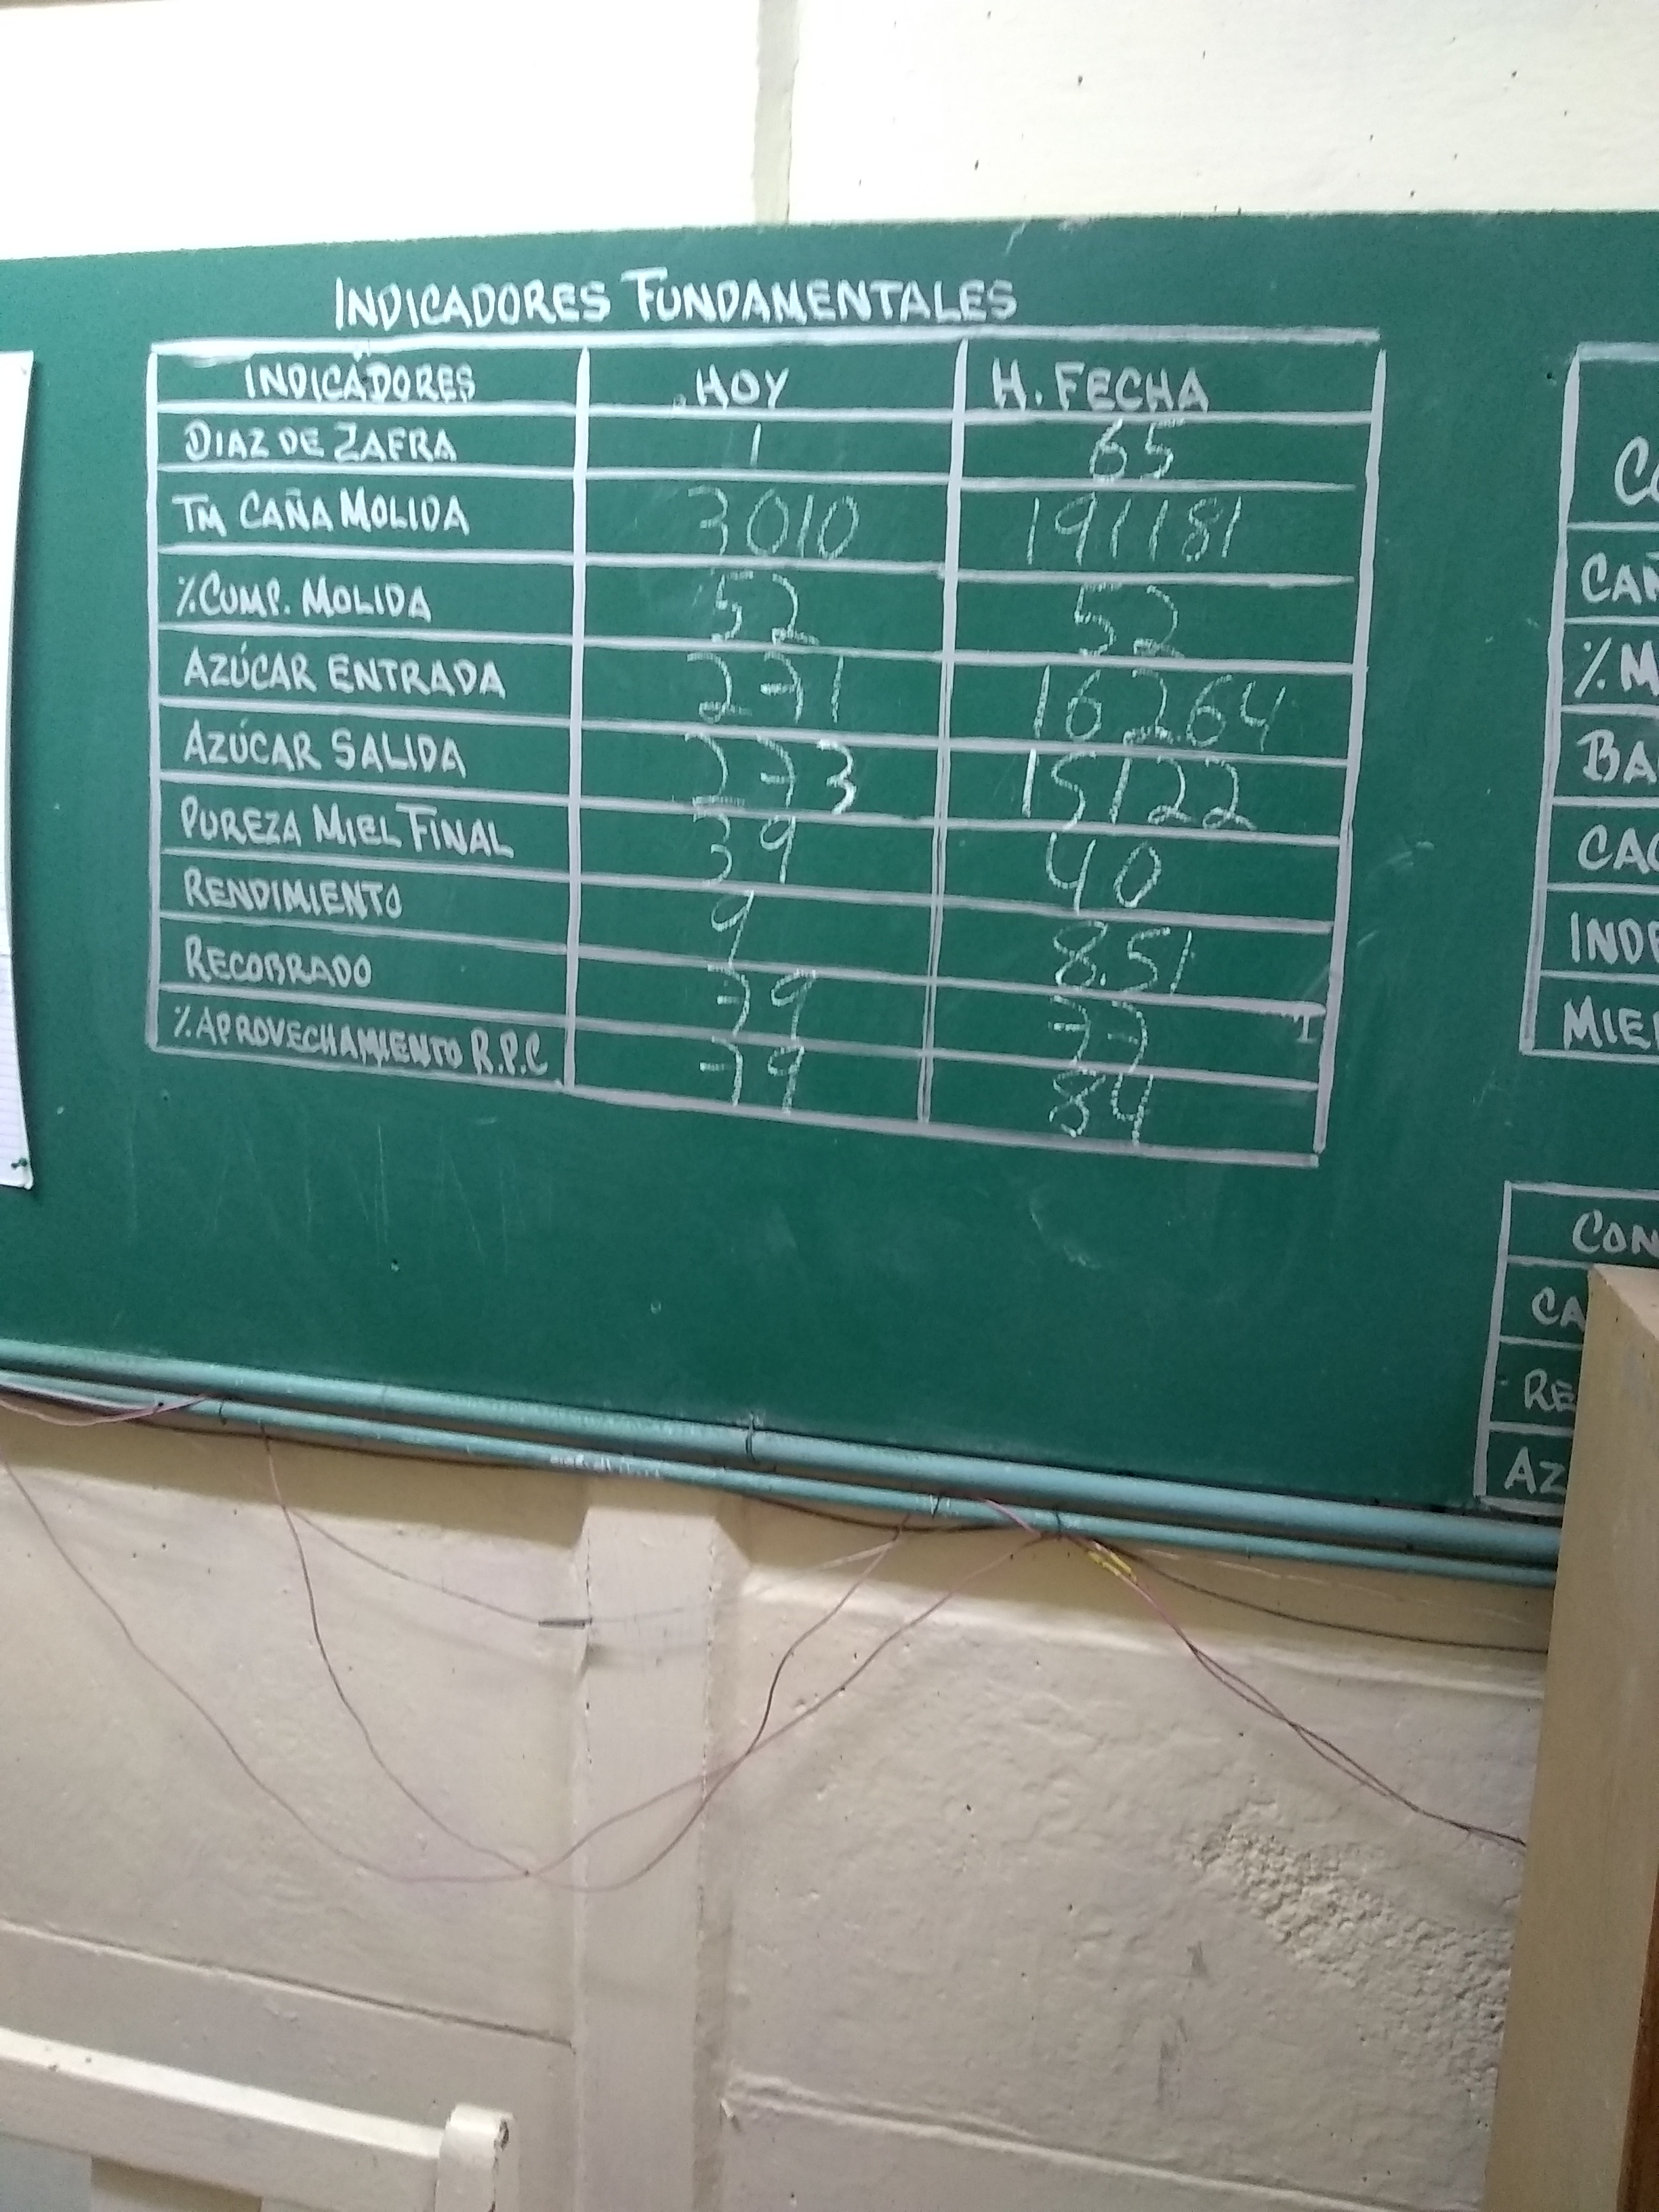 INDICADORES FUNDAMENTALES
INDICADORES HOY H. FECHA
DIAZ DE ZAFRA 1 65
TM CAÑA MOLIDA 3010 191181
%CUMP. MOLIDA 52 52
AZÚCAR ENTRADA 271 16264
AZÚCAR SALIDA 273 15122
PUREZA MIEL FINAL 39 40
RENDIMIENTO 9 8.51
RECOBRADO 79 77
% APROVECHAMIENTO R.P.C 79 84
CO
CAÑ
%M
BA
CAC
INDE
MIEL
CON
CA
RE
AZ